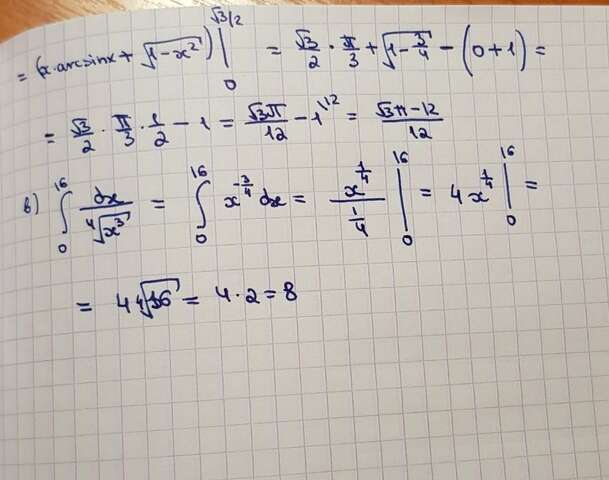 = (x·arcsinx + √(1-x²)) |₀^(√3/2) = √3/2 · π/3 + √(1-3/4) - (0+1) =
= √3/2 · π/3 · 1/2 - 1 = √3π/12 - 1^(\12) = (√3π-12)/12
в) ∫₀^16 dx/⁴√(x³) = ∫₀^16 x^(-3/4) dx = x^(1/4)/(1/4) |₀^16 = 4x^(1/4) |₀^16 =
= 4 ⁴√16 = 4·2 = 8